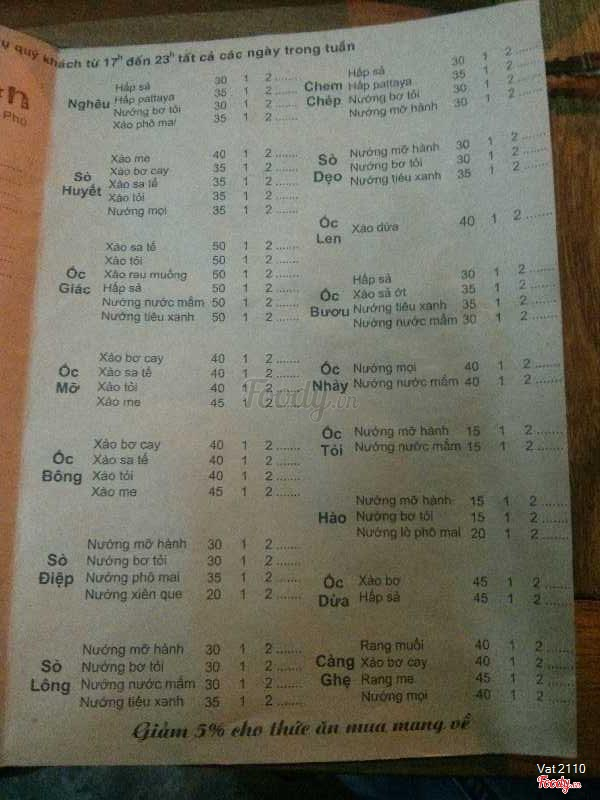 quý khách từ 17h đến 23h tất cả các ngày trong tuần
Phố
Nghêu
Hấp sả 30 1 2.......
Hấp pattaya 35 1 2.......
Nướng bơ tỏi 30 1 2.......
Xào phô mai 35 1 2.......
Sò Huyết
Xào me 40 1 2.......
Xào bơ cay 35 1 2.......
Xào sa tế 35 1 2.......
Xào tỏi 35 1 2.......
Nướng mọi 35 1 2.......
Ốc Giác
Xào sa tế 50 1 2.......
Xào tỏi 50 1 2.......
Xào rau muống 50 1 2.......
Hấp sả 50 1 2.......
Nướng nước mắm 50 1 2.......
Nướng tiêu xanh 50 1 2.......
Ốc Mỡ
Xào bơ cay 40 1 2.......
Xào sa tế 40 1 2.......
Xào tỏi 40 1 2.......
Xào me 45 1 2.......
Ốc Bông
Xào bơ cay 40 1 2.......
Xào sa tế 40 1 2.......
Xào tỏi 40 1 2.......
Xào me 45 1 2.......
Sò Điệp
Nướng mỡ hành 30 1 2.......
Nướng bơ tỏi 30 1 2.......
Nướng phô mai 35 1 2.......
Nướng xiên que 20 1 2.......
Sò Lông
Nướng mỡ hành 30 1 2.......
Nướng bơ tỏi 30 1 2.......
Nướng nước mắm 30 1 2.......
Nướng tiêu xanh 35 1 2.......
Chem Chép
Hấp sả 30 1 2.......
Hấp pattaya 35 1 2.......
Nướng bơ tỏi 30 1 2.......
Nướng mỡ hành 30 1 2.......
Sò Dẹo
Nướng mỡ hành 30 1 2.......
Nướng bơ tỏi 30 1 2.......
Nướng tiêu xanh 35 1 2.......
Ốc Len
Xào dừa 40 1 2.......
Ốc Bươu
Hấp sả 30 1 2.......
Xào sả ớt 35 1 2.......
Nướng tiêu xanh 35 1 2.......
Nướng nước mắm 30 1 2.......
Ốc Nhảy
Nướng mọi 40 1 2.......
Nướng nước mắm 40 1 2.......
Ốc Tỏi
Nướng mỡ hành 15 1 2.......
Nướng nước mắm 15 1 2.......
Hào
Nướng mỡ hành 15 1 2.......
Nướng bơ tỏi 15 1 2.......
Nướng lò phô mai 20 1 2.......
Ốc Dừa
Xào bơ 45 1 2.......
Hấp sả 45 1 2.......
Càng Ghẹ
Rang muối 40 1 2.......
Xào bơ cay 40 1 2.......
Rang me 45 1 2.......
Nướng mọi 40 1 2.......
Giảm 5% cho thức ăn mua mang về
Foody.vn
Vat2110
Foody.vn